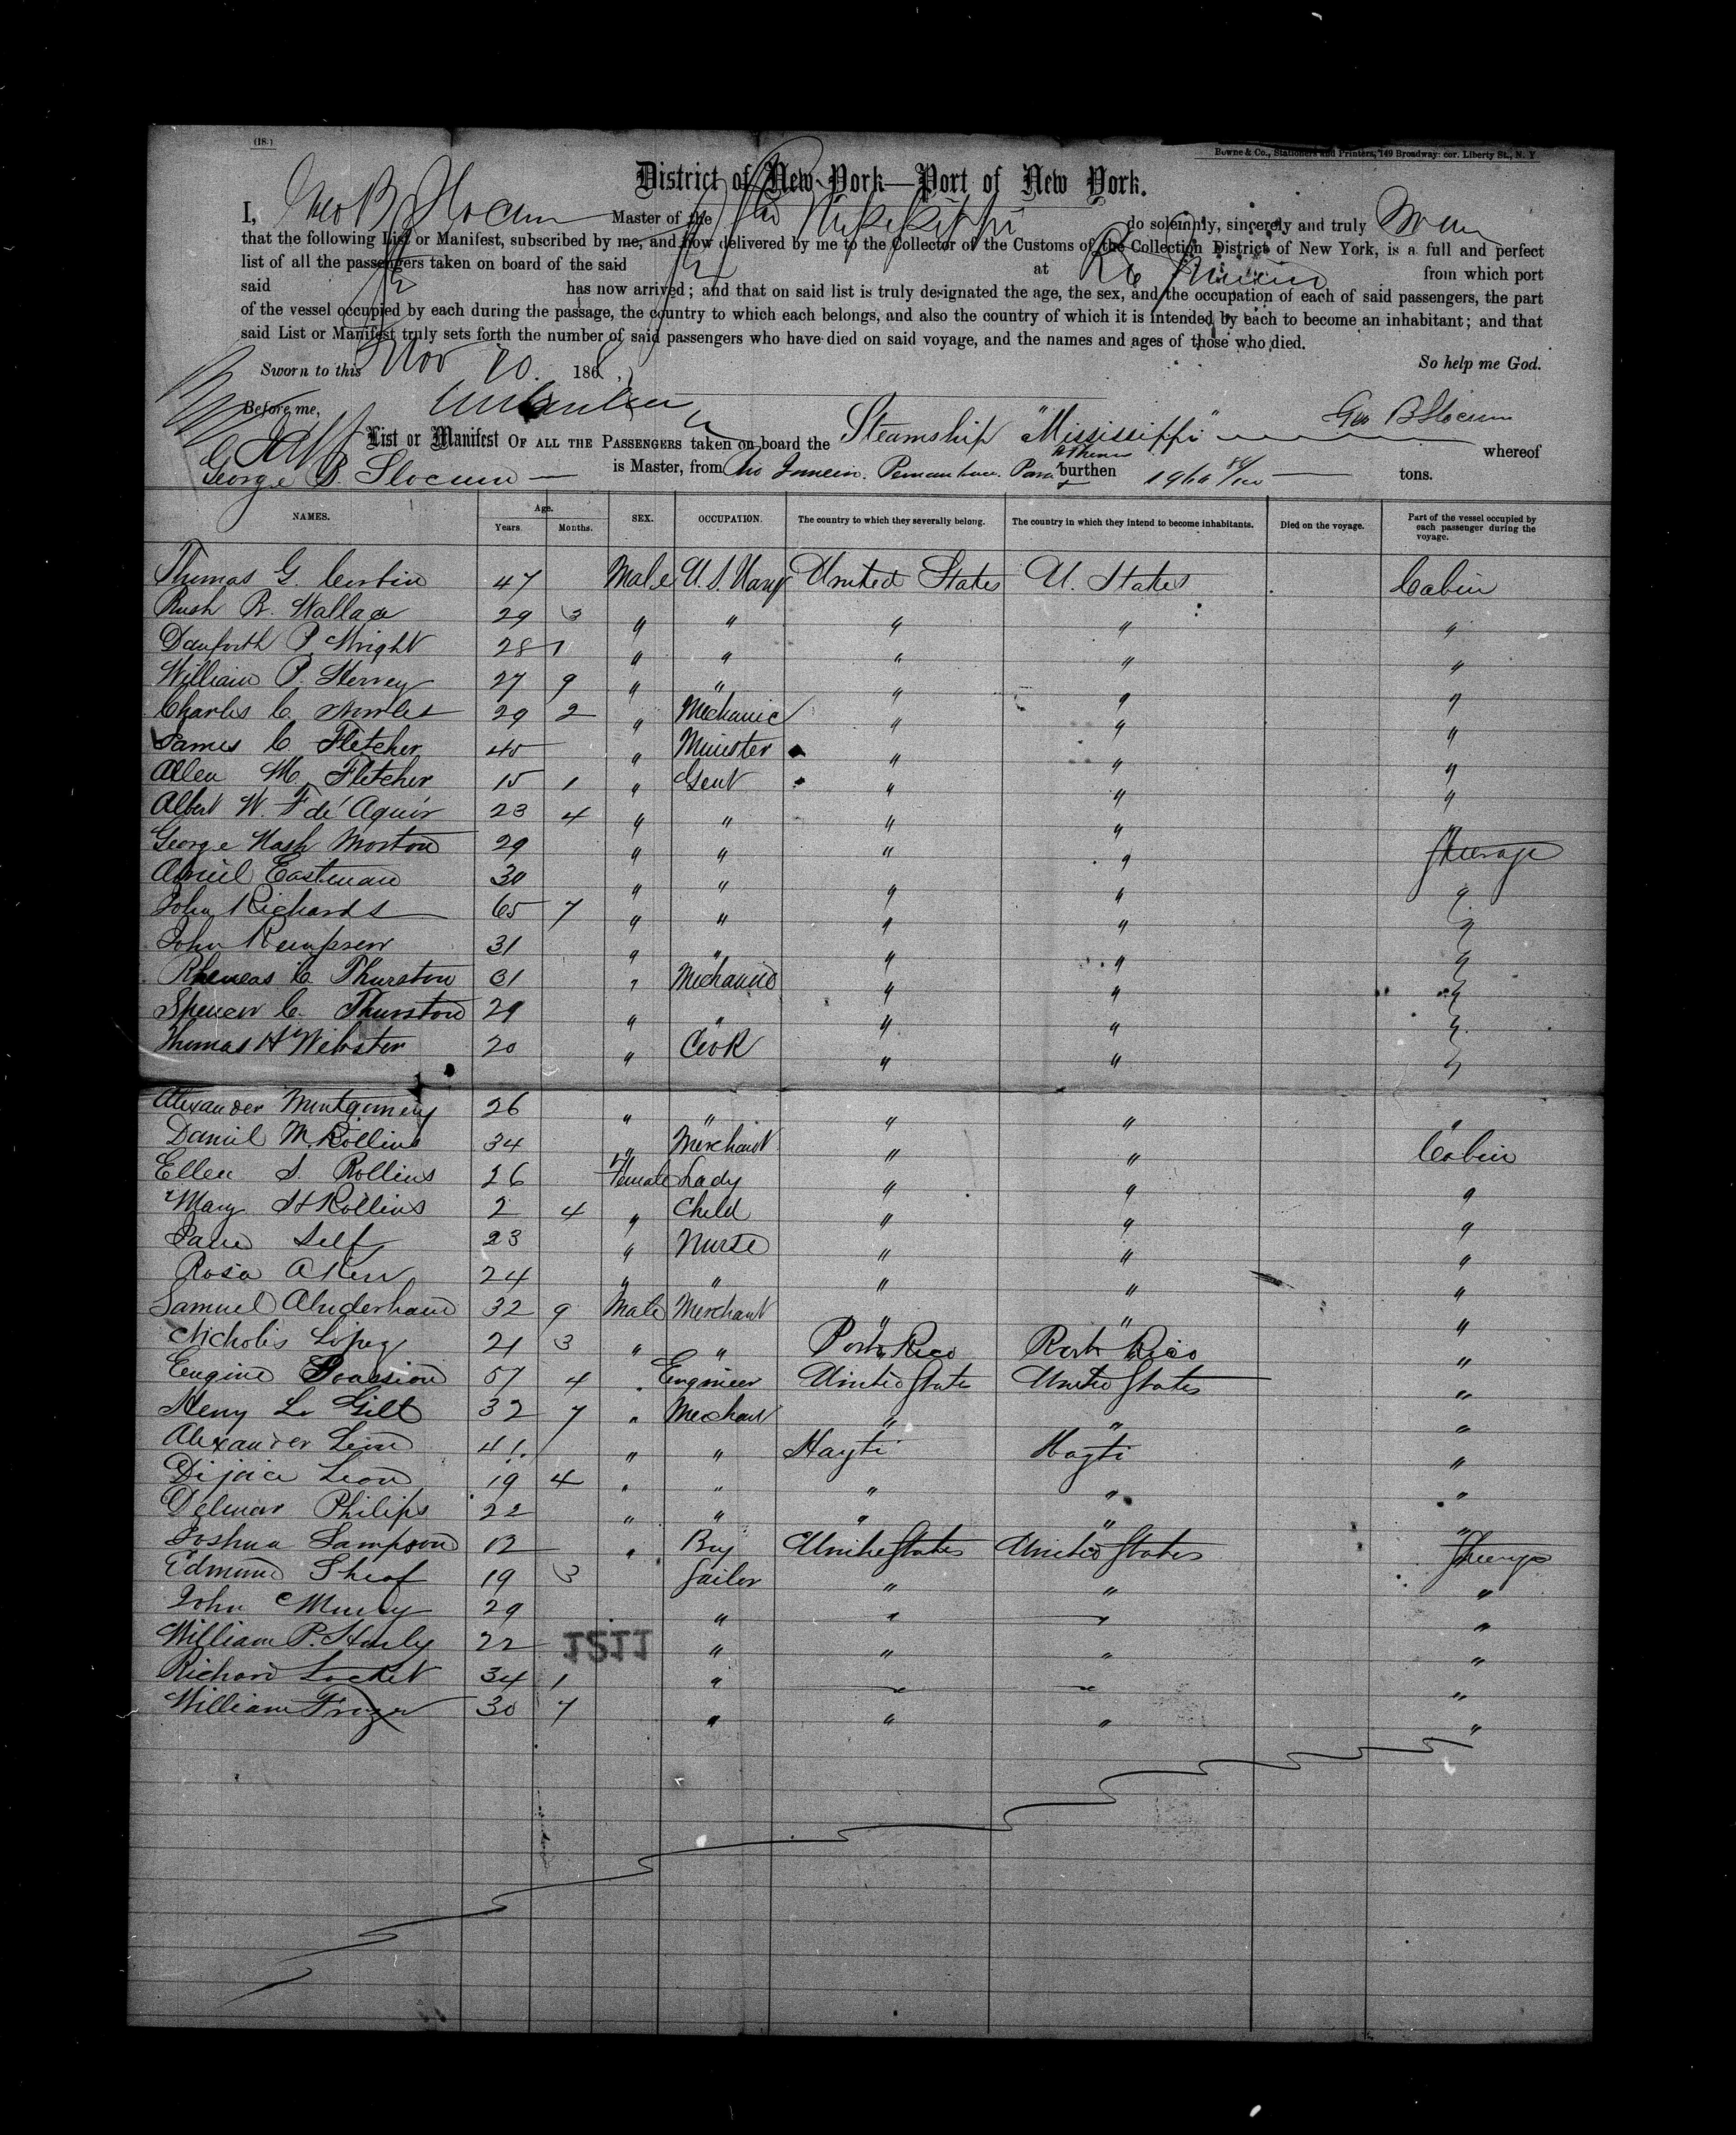 (18.)
Bowne & Co., Stationers and Printers, 149 Broadway: cor. Liberty St., N. Y
District of New-York—Port of New York.
I, Geo B Slocum Master of the do solemnly, sincerely and truly
that the following List or Manifest, subscribed by me, and now delivered by me to the Collector of the Customs of the Collection District of New York, is a full and perfect
list of all the passengers taken on board of the said at from which port
said has now arrived; and that on said list is truly designated the age, the sex, and the occupation of each of said passengers, the part
of the vessel occupied by each during the passage, the country to which each belongs, and also the country of which it is intended by each to become an inhabitant; and that
said List or Manifest truly sets forth the number of said passengers who have died on said voyage, and the names and ages of those who died.
So help me God.
Sworn to this Nov 186
Before me, Geo B Slocum
List or Manifest OF ALL THE PASSENGERS taken on board the Steamship "Mississippi" whereof
George B. Slocum is Master, from burthen tons.
NAMES. Age. Years Months. SEX. OCCUPATION. The country to which they severally belong. The country in which they intend to become inhabitants. Died on the voyage. Part of the vessel occupied by each passenger during the voyage.
Thomas G. Corbin 47 Male U.S. Navy United States U. States Cabin
Rush R. Wallace 29 3 " " " " "
Danforth P. Wright 28 1 " " " " "
William P. 27 9 " " " " "
Charles C. 29 2 " Mechanic " " "
James C. Fletcher 45 " Minister " " "
Allen M. Fletcher 15 1 " Gent " " "
Albert W. F de Aguir 23 4 " " " " "
George Nash Morton 29 " " " " Steerage
Eastman 30 " " " " "
John Richards 65 7 " " " " "
John 31 " " " " "
C. Thurston 31 " Mechanic " " "
Spencer C. Thurston 29 " " " " "
Thomas H Webster 20 " Cook " " "
Alexander Montgomery 26 " " " " "
Daniel M. Rollins 34 " Merchant " " Cabin
Ellen S. Rollins 26 Female Lady " " "
Mary H Rollins 2 4 " Child " " "
Jane Self 23 " Nurse " " "
Rosa 24 " " " " "
Samuel 32 9 Male Merchant " " "
Nicholis Lopez 21 3 " " Porto Rico Porto Rico "
Eugine 57 4 " Engineer United State United States "
Henry L. Gilt 32 7 " " " "
Alexander Leon 41 " " Hayti Hayti "
Leon 19 4 " " " " "
Delmar Philips 22 " " " " "
Joshua Sampson 12 " Boy United States United States Steerage
Edmund Sheaf 19 3 Sailor " " "
John 29 " " " "
William P. 22 " " " "
1211
Richard Locket 34 1 " " " "
William 30 7 " " " "